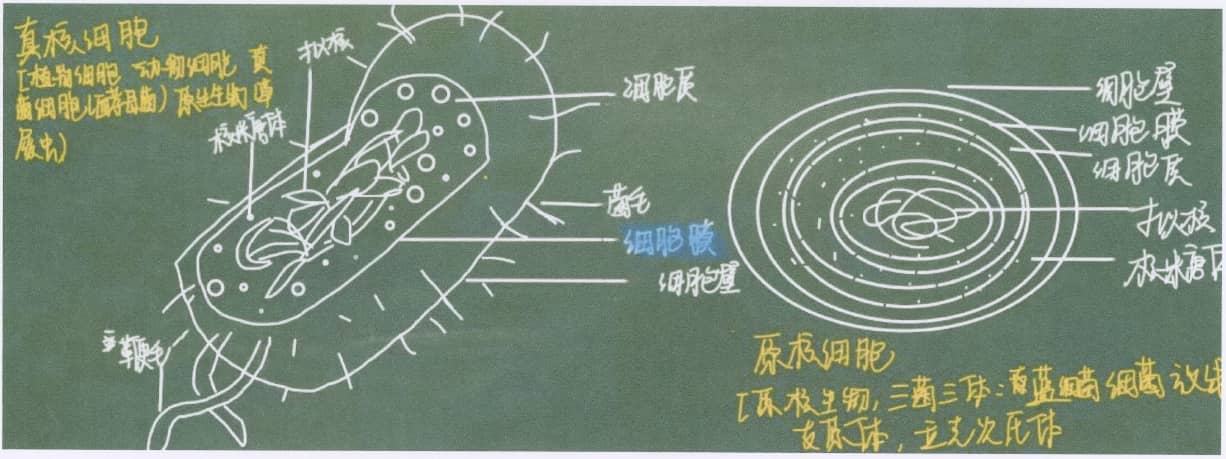 真核细胞
[植物细胞 动物细胞 真
菌细胞(酵母菌) 原生生物 草
履虫)
拟核
核糖体
细胞质
菌毛
细胞膜
细胞壁
鞭毛
细胞壁
细胞膜
细胞质
拟核
核糖体
原核细胞
[原核生物, 三菌三体: 蓝细菌 细菌
支原体,